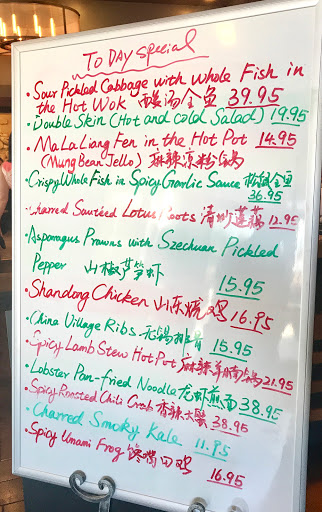 TODAY special
• Sour Pickled Cabbage with Whole Fish in
the Hot Wok 酸汤全鱼 39.95
• Double Skin (Hot and cold Salad) 19.95
• MaLaLiang Fen in the Hot Pot 14.95
(Mung Bean Jello) 麻辣凉粉锅
• Crispy Whole Fish in Spicy Garlic Sauce 松鼠全鱼
36.95
• Charred Sautéed Lotus Roots 清炒莲藕 12.95
• Asparagus Prawns with Szechuan Pickled
Pepper 山椒芦笋虾
15.95
• Shandong Chicken 山东烧鸡 16.95
• China Village Ribs 无锡排骨 15.95
• Spicy Lamb Stew Hot Pot 麻辣羊腩锅 21.95
• Lobster Pan-fried Noodle 龙虾煎面 38.95
• Spicy Roasted Chili Crab 香辣大蟹 38.95
• Charred Smoky Kale 11.95
• Spicy Umami Frog 馋嘴田鸡
16.95